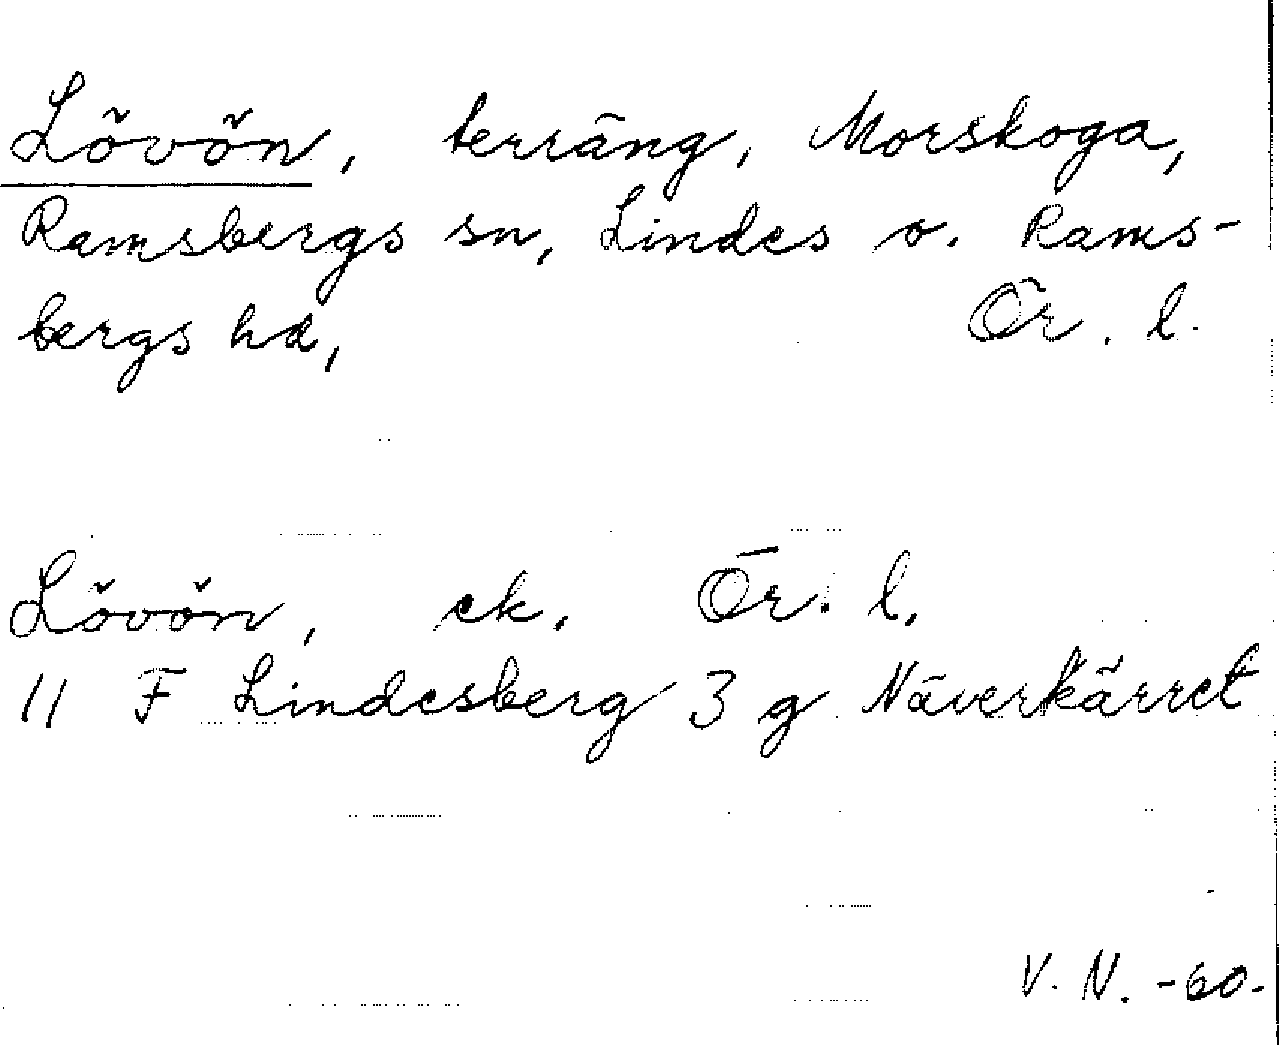 Lövön, terräng, Morskoga,
Ramsbergs sn, Lindes o. Rams-
bergs hd, Ör. l.
Lövön, ek. Ör. l.
11 F Lindesberg 3 g Näverkärret
V. N. -60.